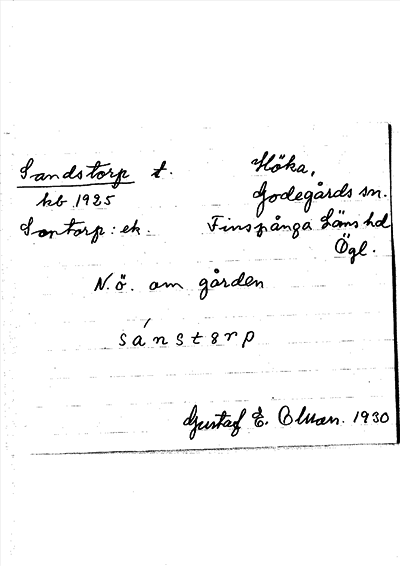 Sandstorp t.
Höka,
kb 1925
Godegårds sn.
Santorp: ek.
Finspånga Läns hd
Ögl.
N.ö. om gården
sánstɞrp
Gustaf E. Olsson. 1930